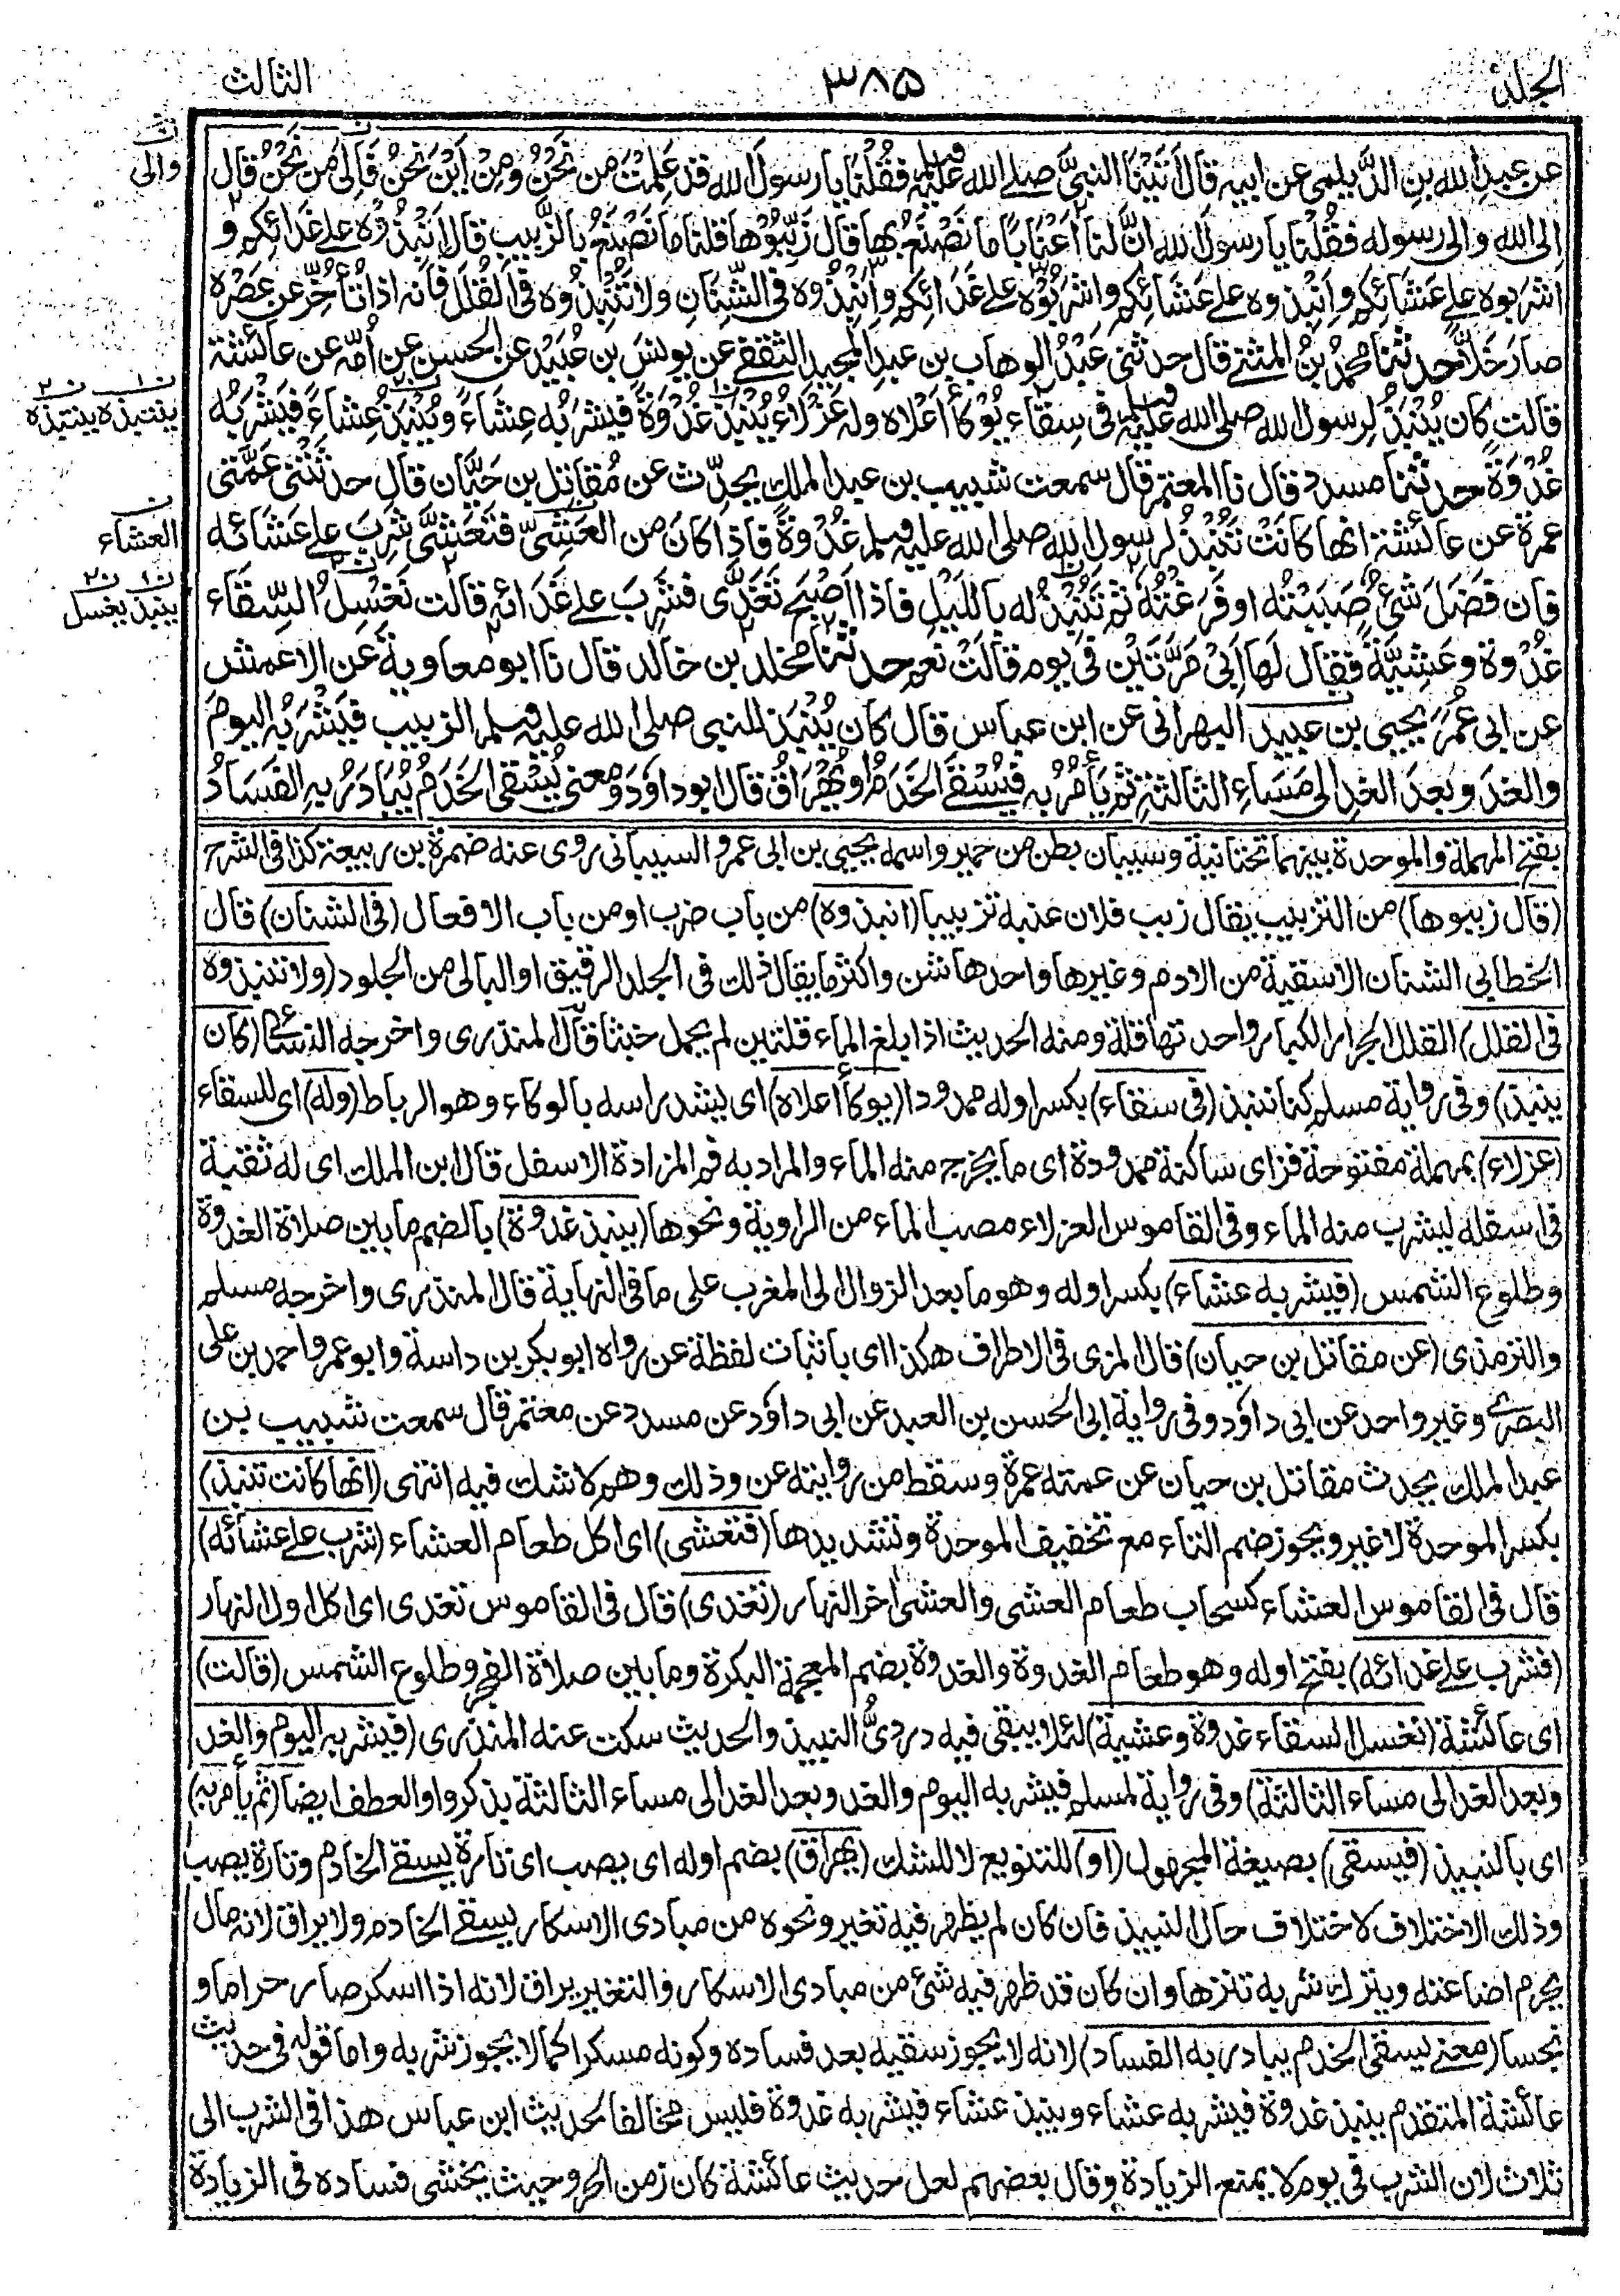 الجلد
٣٨٥
الثالث
عن عبدِ الله بنِ الدَّيلمي عن ابيه قال اَتَيْنَا النبيَّ صلے الله عليه وسلم فقُلْنَا يا رسولَ الله قد عَلِمْتَ مَن نَحْنُ ومِنْ اَيْنَ نَحْنُ فَاِلىٰ مَن نَحْنُ قال
الى الله والى رسوله فقُلْنَا يا رسولَ الله اِنَّ لنا أعْنَاباً ما نَصْنَعُ بها قال زَبِّبُوْها قلنا ما نَصْنَعُ بالزَّبيب قال اَنْبِذُوْهُ علے غَدَائِكم و
اشْرَبوه علے عَشَائِكم واَنْبِذوه علے عَشَائِكم واشْرَبُوْه علے غَدَائِكم واَنْبِذُوْه فى الشِّنَانِ ولا تَنْبِذُوه فى القُلَلِ فَاِنه اذا تأخَّرَ عن عَصْرِه
صارَ خَلّاً حدثنا محمدُ بنُ المثنے قال حدثنى عَبْدُ الوهاب بن عبدِ المجيد الثقفے عن يونسَ بن عُبَيْد عن الحسن عن اُمِّه عن عائشة
قالت كان يُنْبَذُ لرسول الله صلى الله عليه وسلم فى سِقَاء يُوْكأُ اَعْلاه وله عَزْلَاءُ يُنْبَذُ غُدْوَةً فيشْرَبُه عِشَاءً ويُنْبَذُ عِشاءً فيَشْرَبُه
غُدْوَةً حدثنا مسدد قال نا المعتمر قال سمعت شبيب بن عبد الملك يحدِّث عن مُقاتِل بن حَيَّان قال حدثَتْنى عَمَّتى
عمرة عن عائشة انها كانَتْ تَنْبِذُ لرسول الله صلى الله عليه وسلم غُدْوةً فاذا كانَ من العَشِىِّ فتَعَشَّى شَرِبَ علے عَشَائه
فإن فَضَلَ شَئٌ صَبَبْتُه او فَرَغْتُه ثم تَنْبِذُ له بالليلِ فاذا اَصْبَحَ تَغَدَّى فشَرِبَ علے غَدَائه قالت تَغْسِلُ السِّقَاء
غُدْوة وعَشِيَّةً فقال لَها اَبى مَرَّتَيْن فى يوم قالَتْ نعم حدثنا مخلد بن خالد قال نا ابو معاوية عن الاعمش
عن ابى عُمَرَ يحيى بن عبيد البهرانى عن ابن عباس قال كان يُنْبَذ للنبى صلى الله عليه وسلم الزبيب فيَشْرَبُه اليومَ
والغدَ وبعدَ الغدِ الى مَسَاءِ الثالثة ثم يَأْمُرُ به فيُسْقَے الخَدَمُ او يُهْرَاقُ قال ابوداؤد ومعنى يُسْقى الخَدَمُ يُبَادَرُ به الفَسَادُ
بفتح المهملة والموحدة بينهما تحتانية وسيبان بطن من حمير واسمه يحيى بن ابى عمرو السيبانى روى عنه ضمرة بن ربيعة كذا فى الشرح
(قال زببوها) من التزبيب يقال زبب فلان عنبه تزبيبا (انبذوه) من باب ضرب او من باب الافعال (فى الشنان) قال
الخطابى الشنان الاسقية من الادم وغيرها واحدها شن واكثر ما يقال ذلك فى الجلد الرقيق او البالى من الجلود (ولا تنبذوه
فى القلل) القلل الجرار الكبار واحدتها قلة ومنه الحديث اذا بلغ الماء قلتين لم يحمل خبثا قال المنذرى واخرجه النسائى (كان
ينبذ) وفى رواية مسلم كنا ننبذ (فى سقاء) بكسر اوله ممدودا (يوكأ اعلاه) اى يشد راسه بالوكاء وهو الرباط (وله) اى للسقاء
(عزلاء) بمهملة مفتوحة فزاى ساكنة ممدودة اى ما يخرج منه الماء والمراد به فم المزادة الاسفل قال ابن الملك اى له ثقبة
فى اسفله ليشرب منه الماء وفى القاموس العزلاء مصب الماء من الراوية ونحوها (ينبذ غدوة) بالضم ما بين صلاة الغدوة
وطلوع الشمس (فيشربه عشاء) بكسر اوله وهو ما بعد الزوال الى المغرب على ما فى النهاية قال المنذرى واخرجه مسلم
والترمذى (عن مقاتل بن حيان) قال المزى فى الاطراف هكذا اى باثبات لفظة عن رواه ابو بكر بن داسة وابو عمرو احمد بن على
البصرے وغير واحد عن ابى داؤد وفى رواية ابى الحسن بن العبد عن ابى داؤد عن مسدد عن معتمر قال سمعت شبيب بن
عبد الملك يحدث مقاتل بن حيان عن عمته عمرة وسقط من روايته عن وذلك وهم لا شك فيه انتهى (انها كانت تنبذ)
بكسر الموحدة لا غير ويجوز ضم التاء مع تخفيف الموحدة وتشديدها (فتعشى) اى اكل طعام العشاء (شرب علے عشائه)
قال فى القاموس العشاء كسحاب طعام العشى والعشى اٰخر النهار (تغدى) قال فى القاموس تغدى اى اكل اول النهار
(فشرب على غدائه) بفتح اوله وهو طعام الغدوة والغدوة بضم المعجمة البكرة وما بين صلاة الفجر وطلوع الشمس (قالت)
اى عائشة (تغسل السقاء غدوة وعشية) لئلا يبقى فيه دردىُّ النبيذ والحديث سكت عنه المنذرى (فيشربه اليوم والغد
وبعد الغد الى مساء الثالثة) وفى رواية لمسلم فيشربه اليوم والغد وبعد الغد الى مساء الثالثة بذكر واو العطف ايضا (ثم يأمر به)
اى بالنبيذ (فيسقى) بصيغة المجهول (او) للتنويع لا للشك (يهراق) بضم اوله اى يصب اى تارة يسقے الخادم وتارة يصب
وذلك الاختلاف لاختلاف حال النبيذ فان كان لم يظهر فيه تغير ونحوه من مبادى الاسكار يسقے الخادم ولا يراق لانه مال
يحرم اضاعته ويترك شربه تنزها وان كان قد ظهر فيه شئ من مبادى الاسكار والتغير يراق لانه اذا اسكر صار حراما و
نجسا (معنے يسقى الخدم يبادر به الفساد) لانه لا يجوز سقيه بعد فساده وكونه مسكرا كما لا يجوز شربه واما قوله فى حديث
عائشة المتقدم ينبذ غدوة فيشربه عشاء وينبذ عشاء فيشربه غدوة فليس مخالفا لحديث ابن عباس هذا فى الشرب الى
ثلاث لان الشرب فى يوم لا يمنع الزيادة وقال بعضهم لعل حديث عائشة كان زمن الحر وحيث يخشى فساده فى الزيادة
ن
والى
ن١ ن٢
ينتبذه ينتبذه
ن
العشاء
ن١ ن٢
ينبذ يغسل